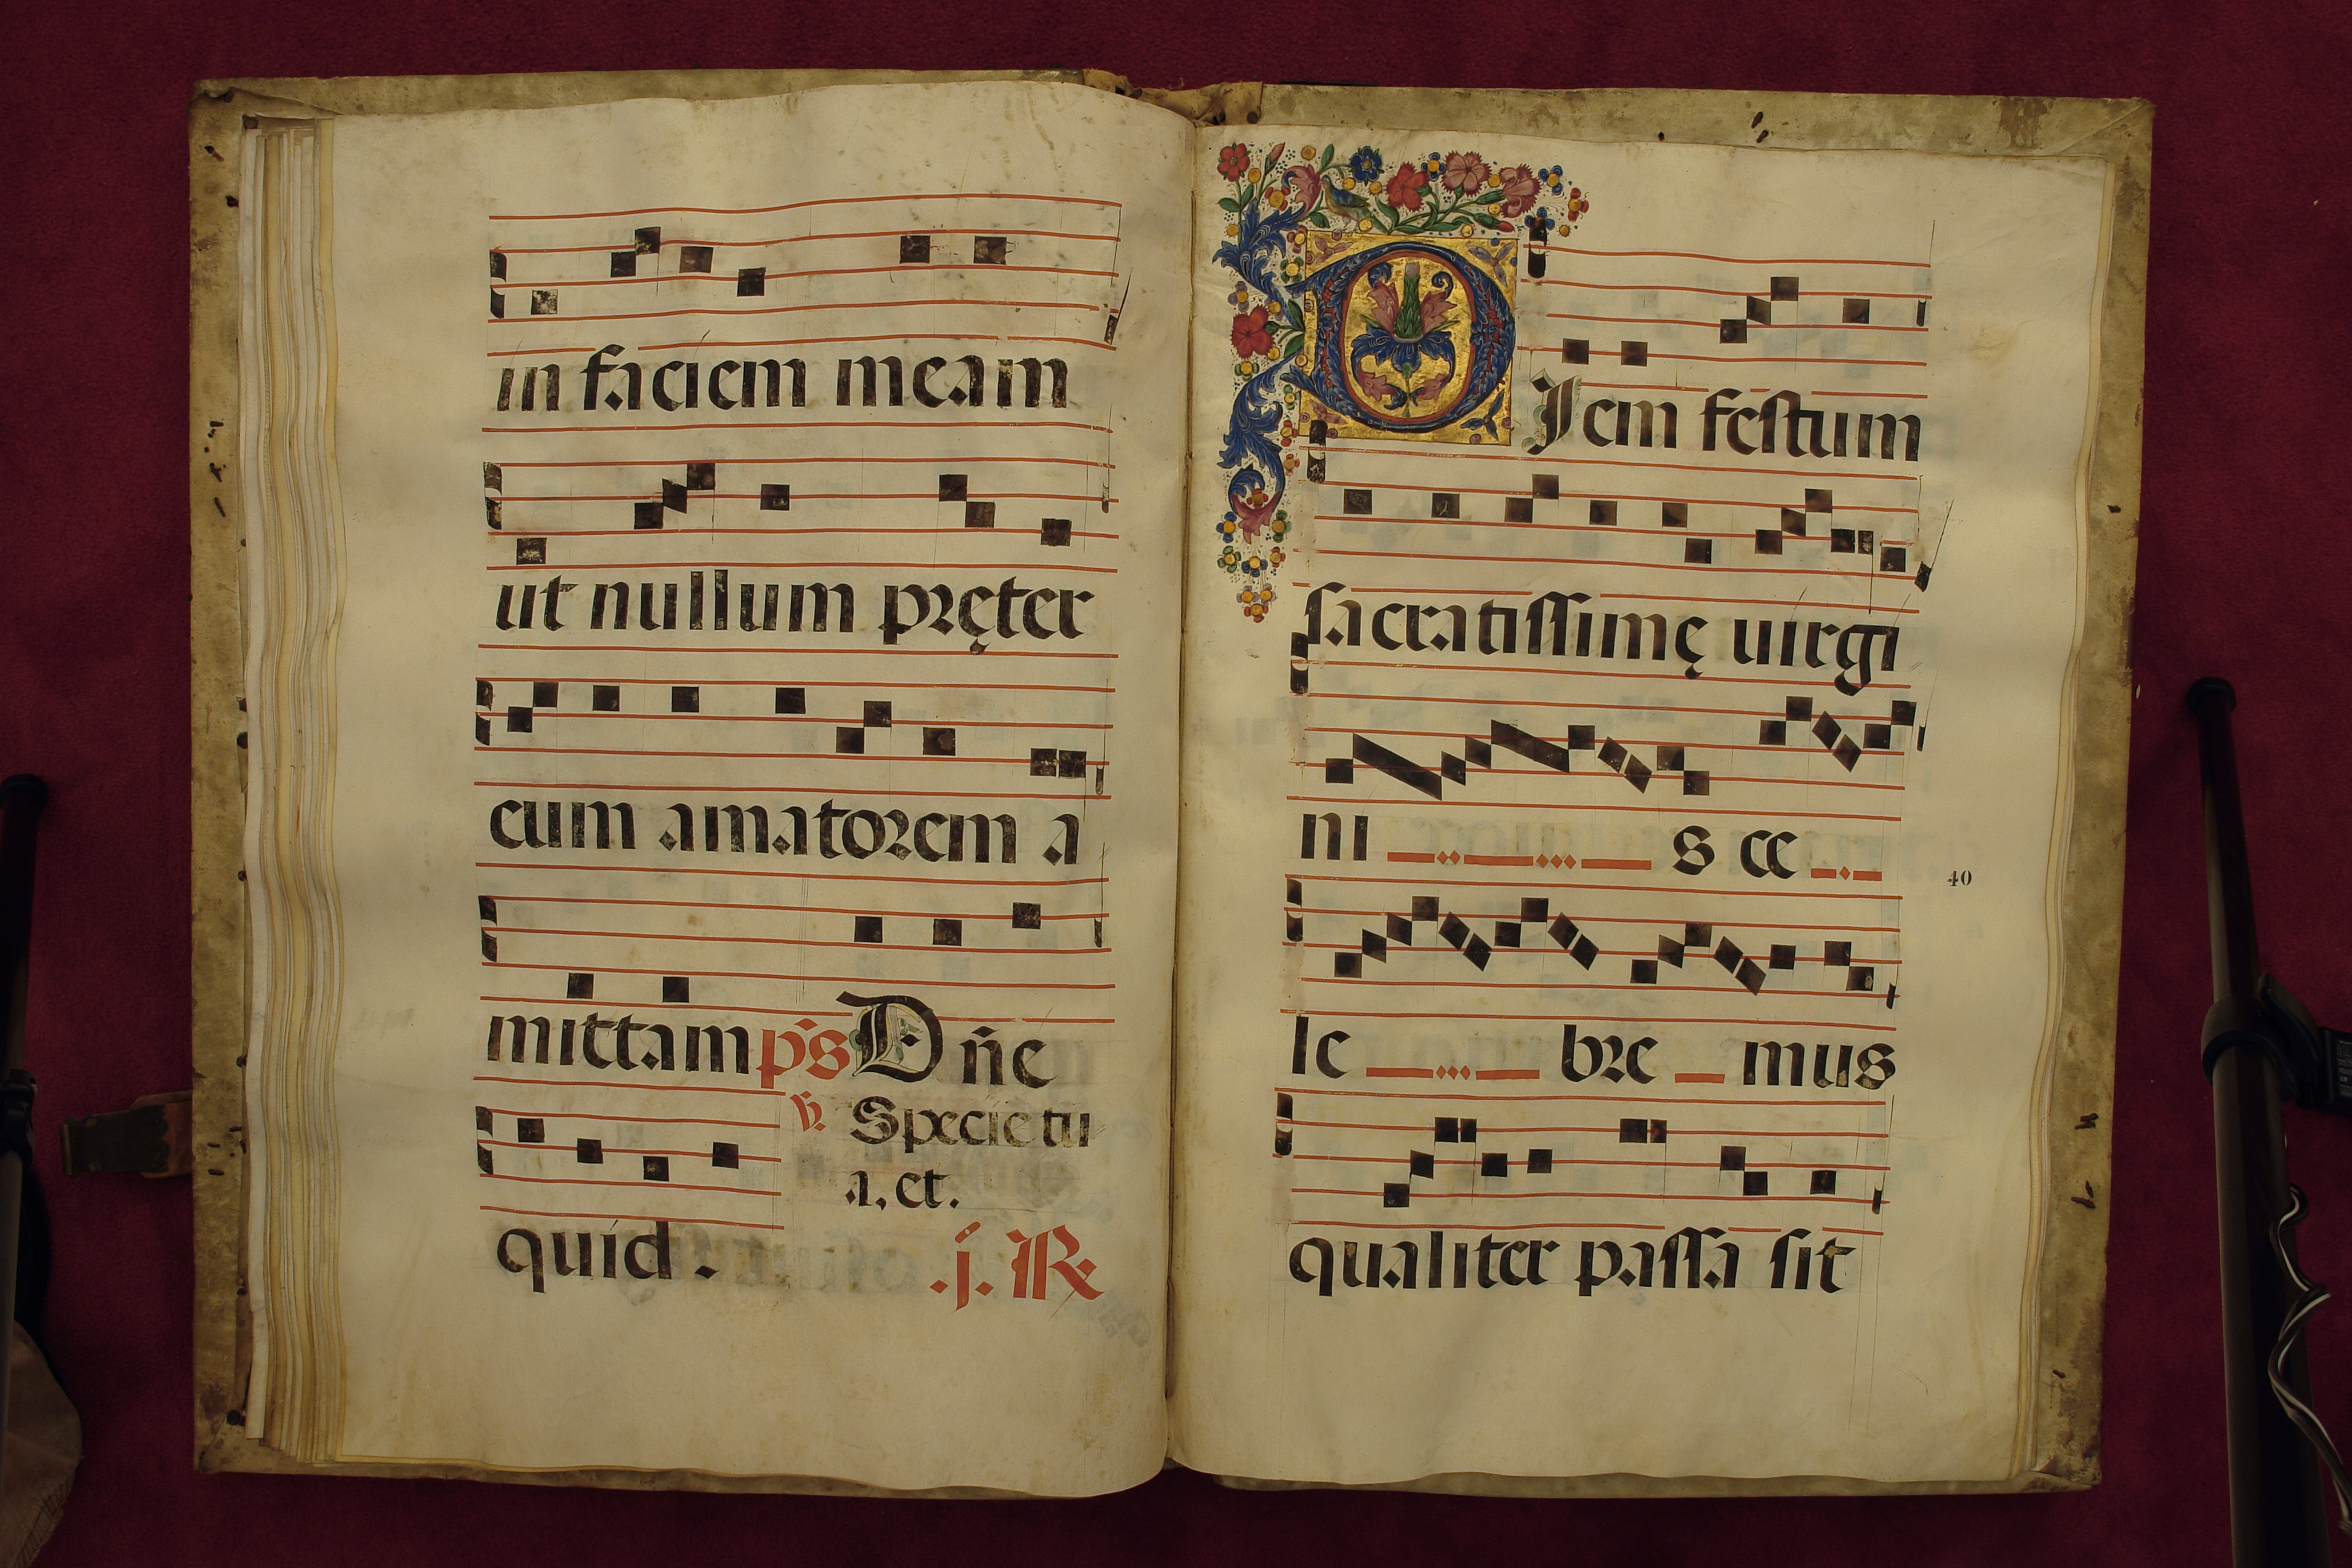 in faciem meam
ut nullum pręter
eum amatorem a
mittam ps Dn̄e
℣. Specie tu
a. et.
quid.
.j. R
DIem festum
sacratissimę uirgi
ni s ce
le bre mus
40
qualiter passa sit